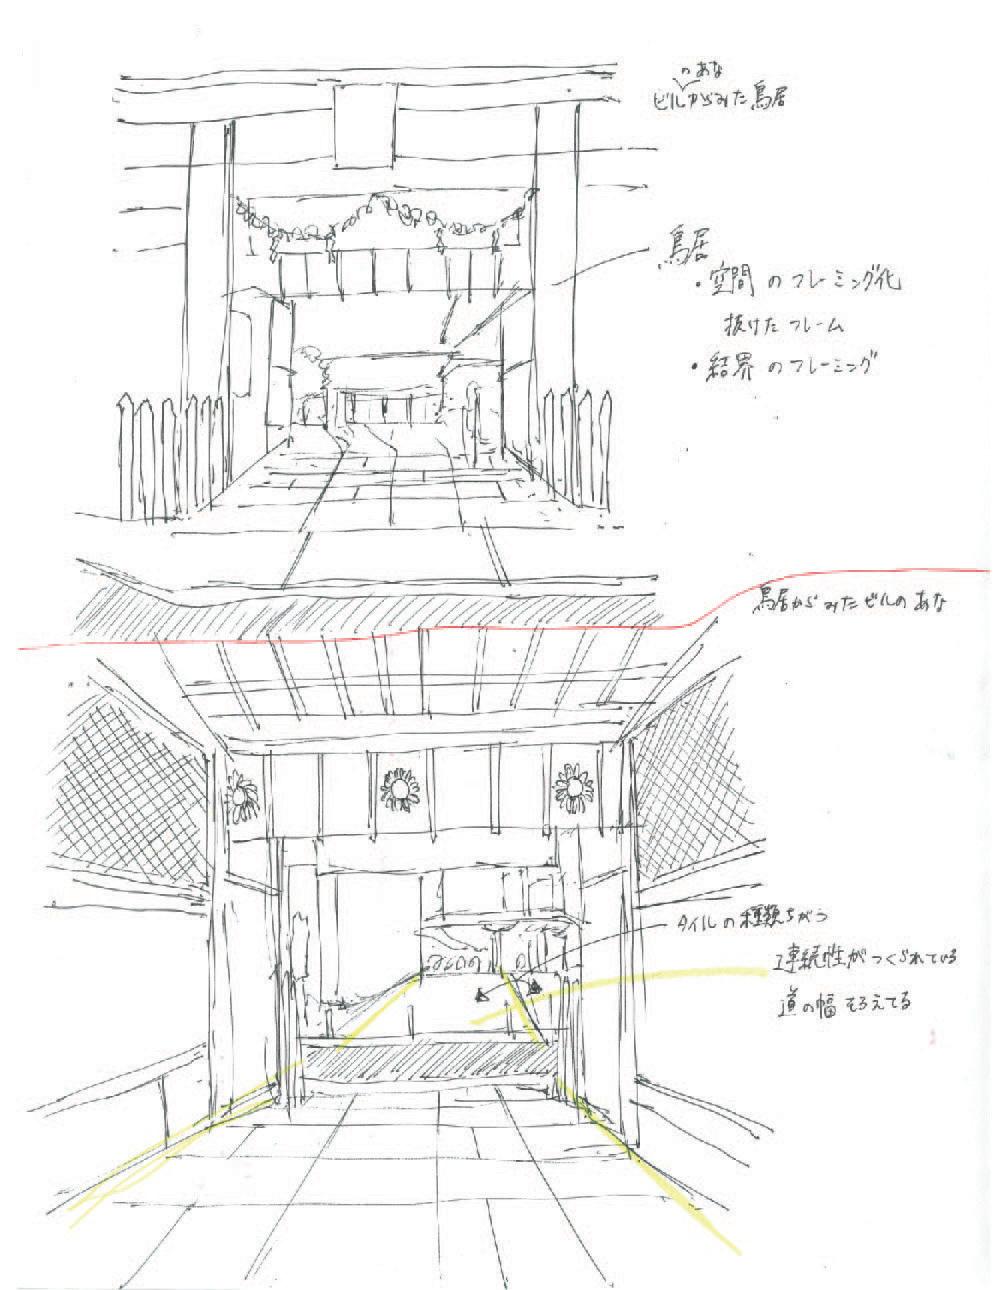 ビルのあなからみた鳥居
鳥居
・空間のフレーミング化
抜けたフレーム
・結界のフレーミング
鳥居からみたビルのあな
タイルの種類ちがう
連続性がつくられている
道の幅そろえてる